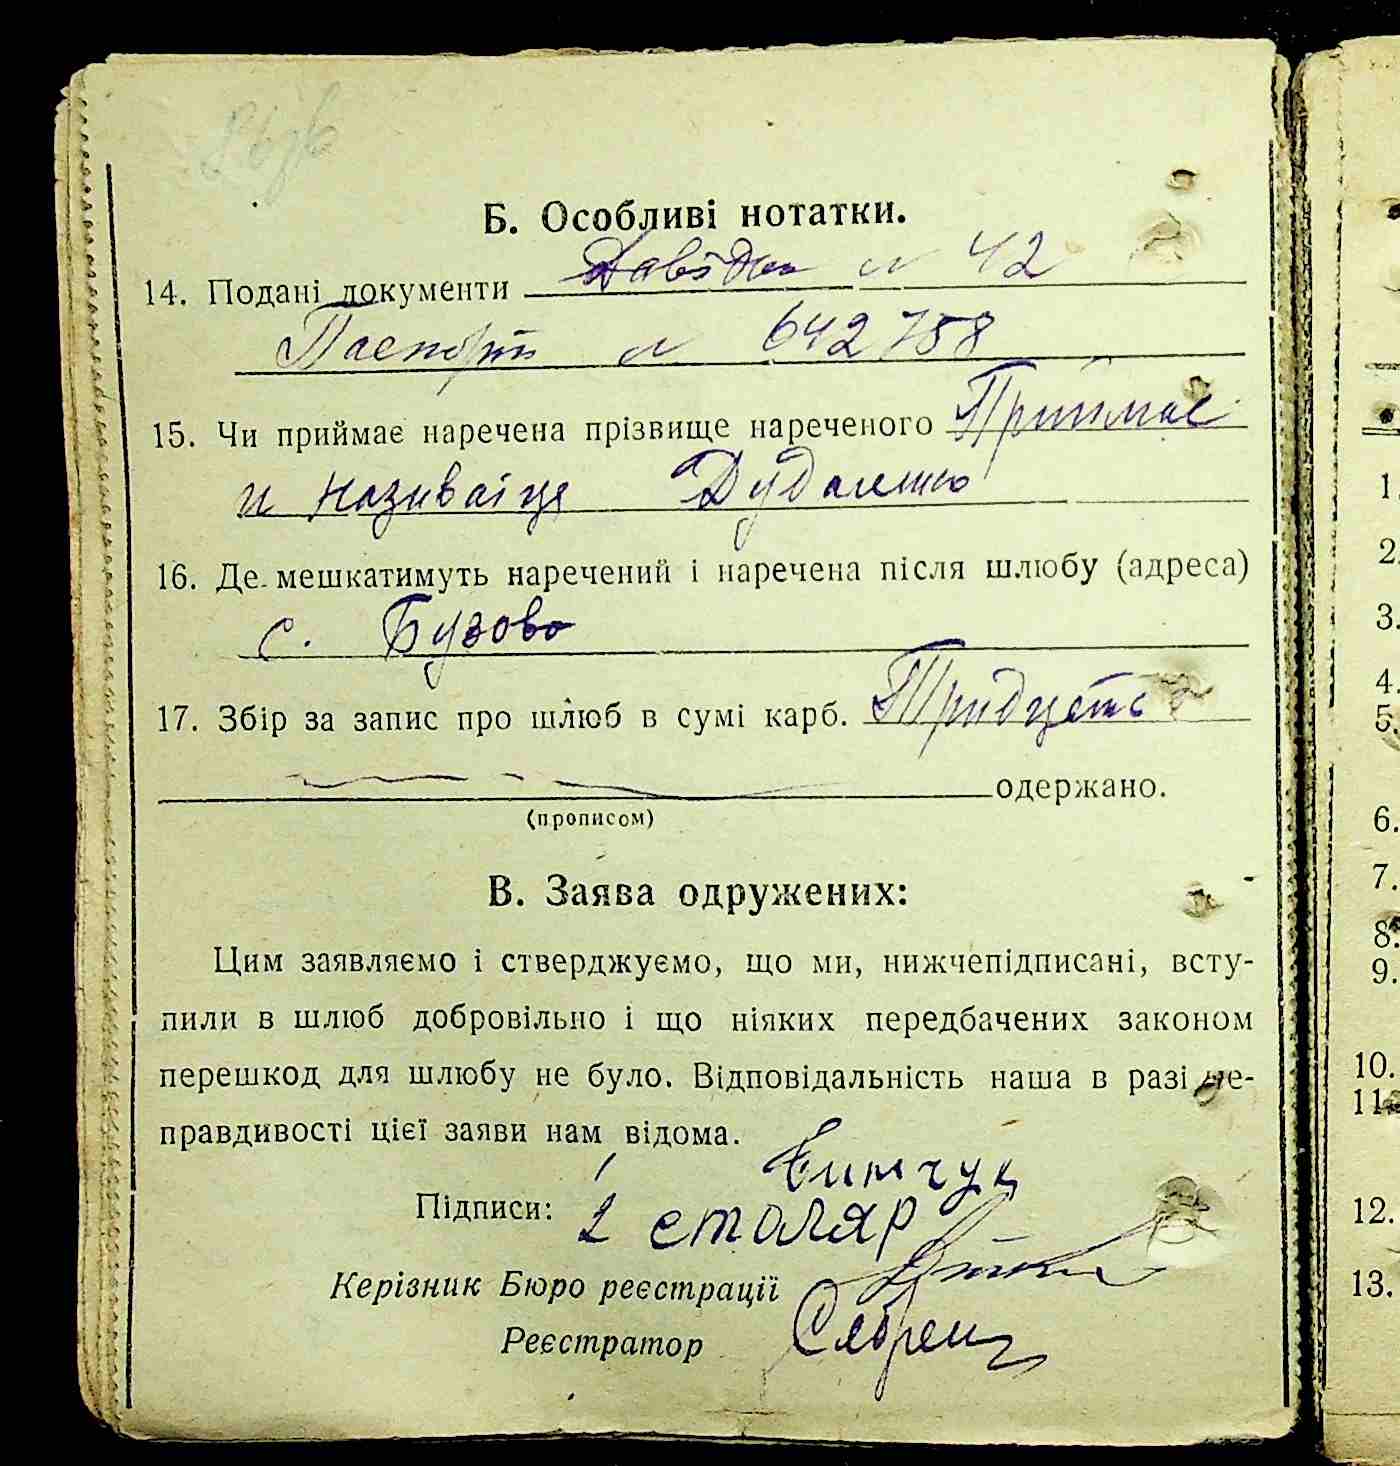 Б. Особливі нотатки.
14. Подані документи Давідка № 42
Паспорт № 642758
15. Чи приймає наречена прізвище нареченого Приймає
и називаіця
16. Де мешкатимуть наречений і наречена після шлюбу (адреса)
с. Бузово
17. Збір за запис про шлюб в сумі карб. Тридцать
одержано.
(прописом)
В. Заява одружених:
Цим заявляємо і стверджуємо, що ми, нижчепідписані, всту-
пили в шлюб добровільно і що ніяких передбачених законом
перешкод для шлюбу не було. Відповідальність наша в разі не-
правдивості цієї заяви нам відома.
Підписи: 2 столяр
Керізник Бюро реєстрації
Реєстратор
1
2.
3.
4.
5.
6.
7.
8.
9.
10.
11.
12.
13.